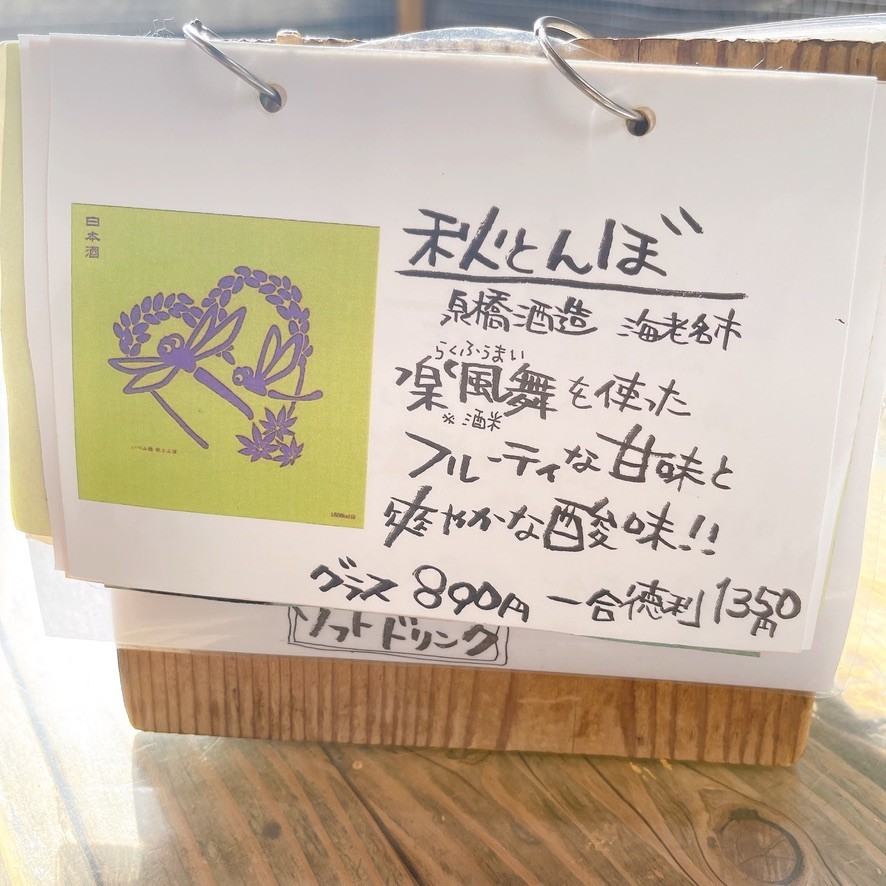 日本酒
秋とんぼ
泉橋酒造 海老名市
らくふうまい
楽風舞を使った
※酒米
フルーティな甘味と
爽やかな酸味!!
グラス 890円 一合徳利 1350円
ソフトドリンク